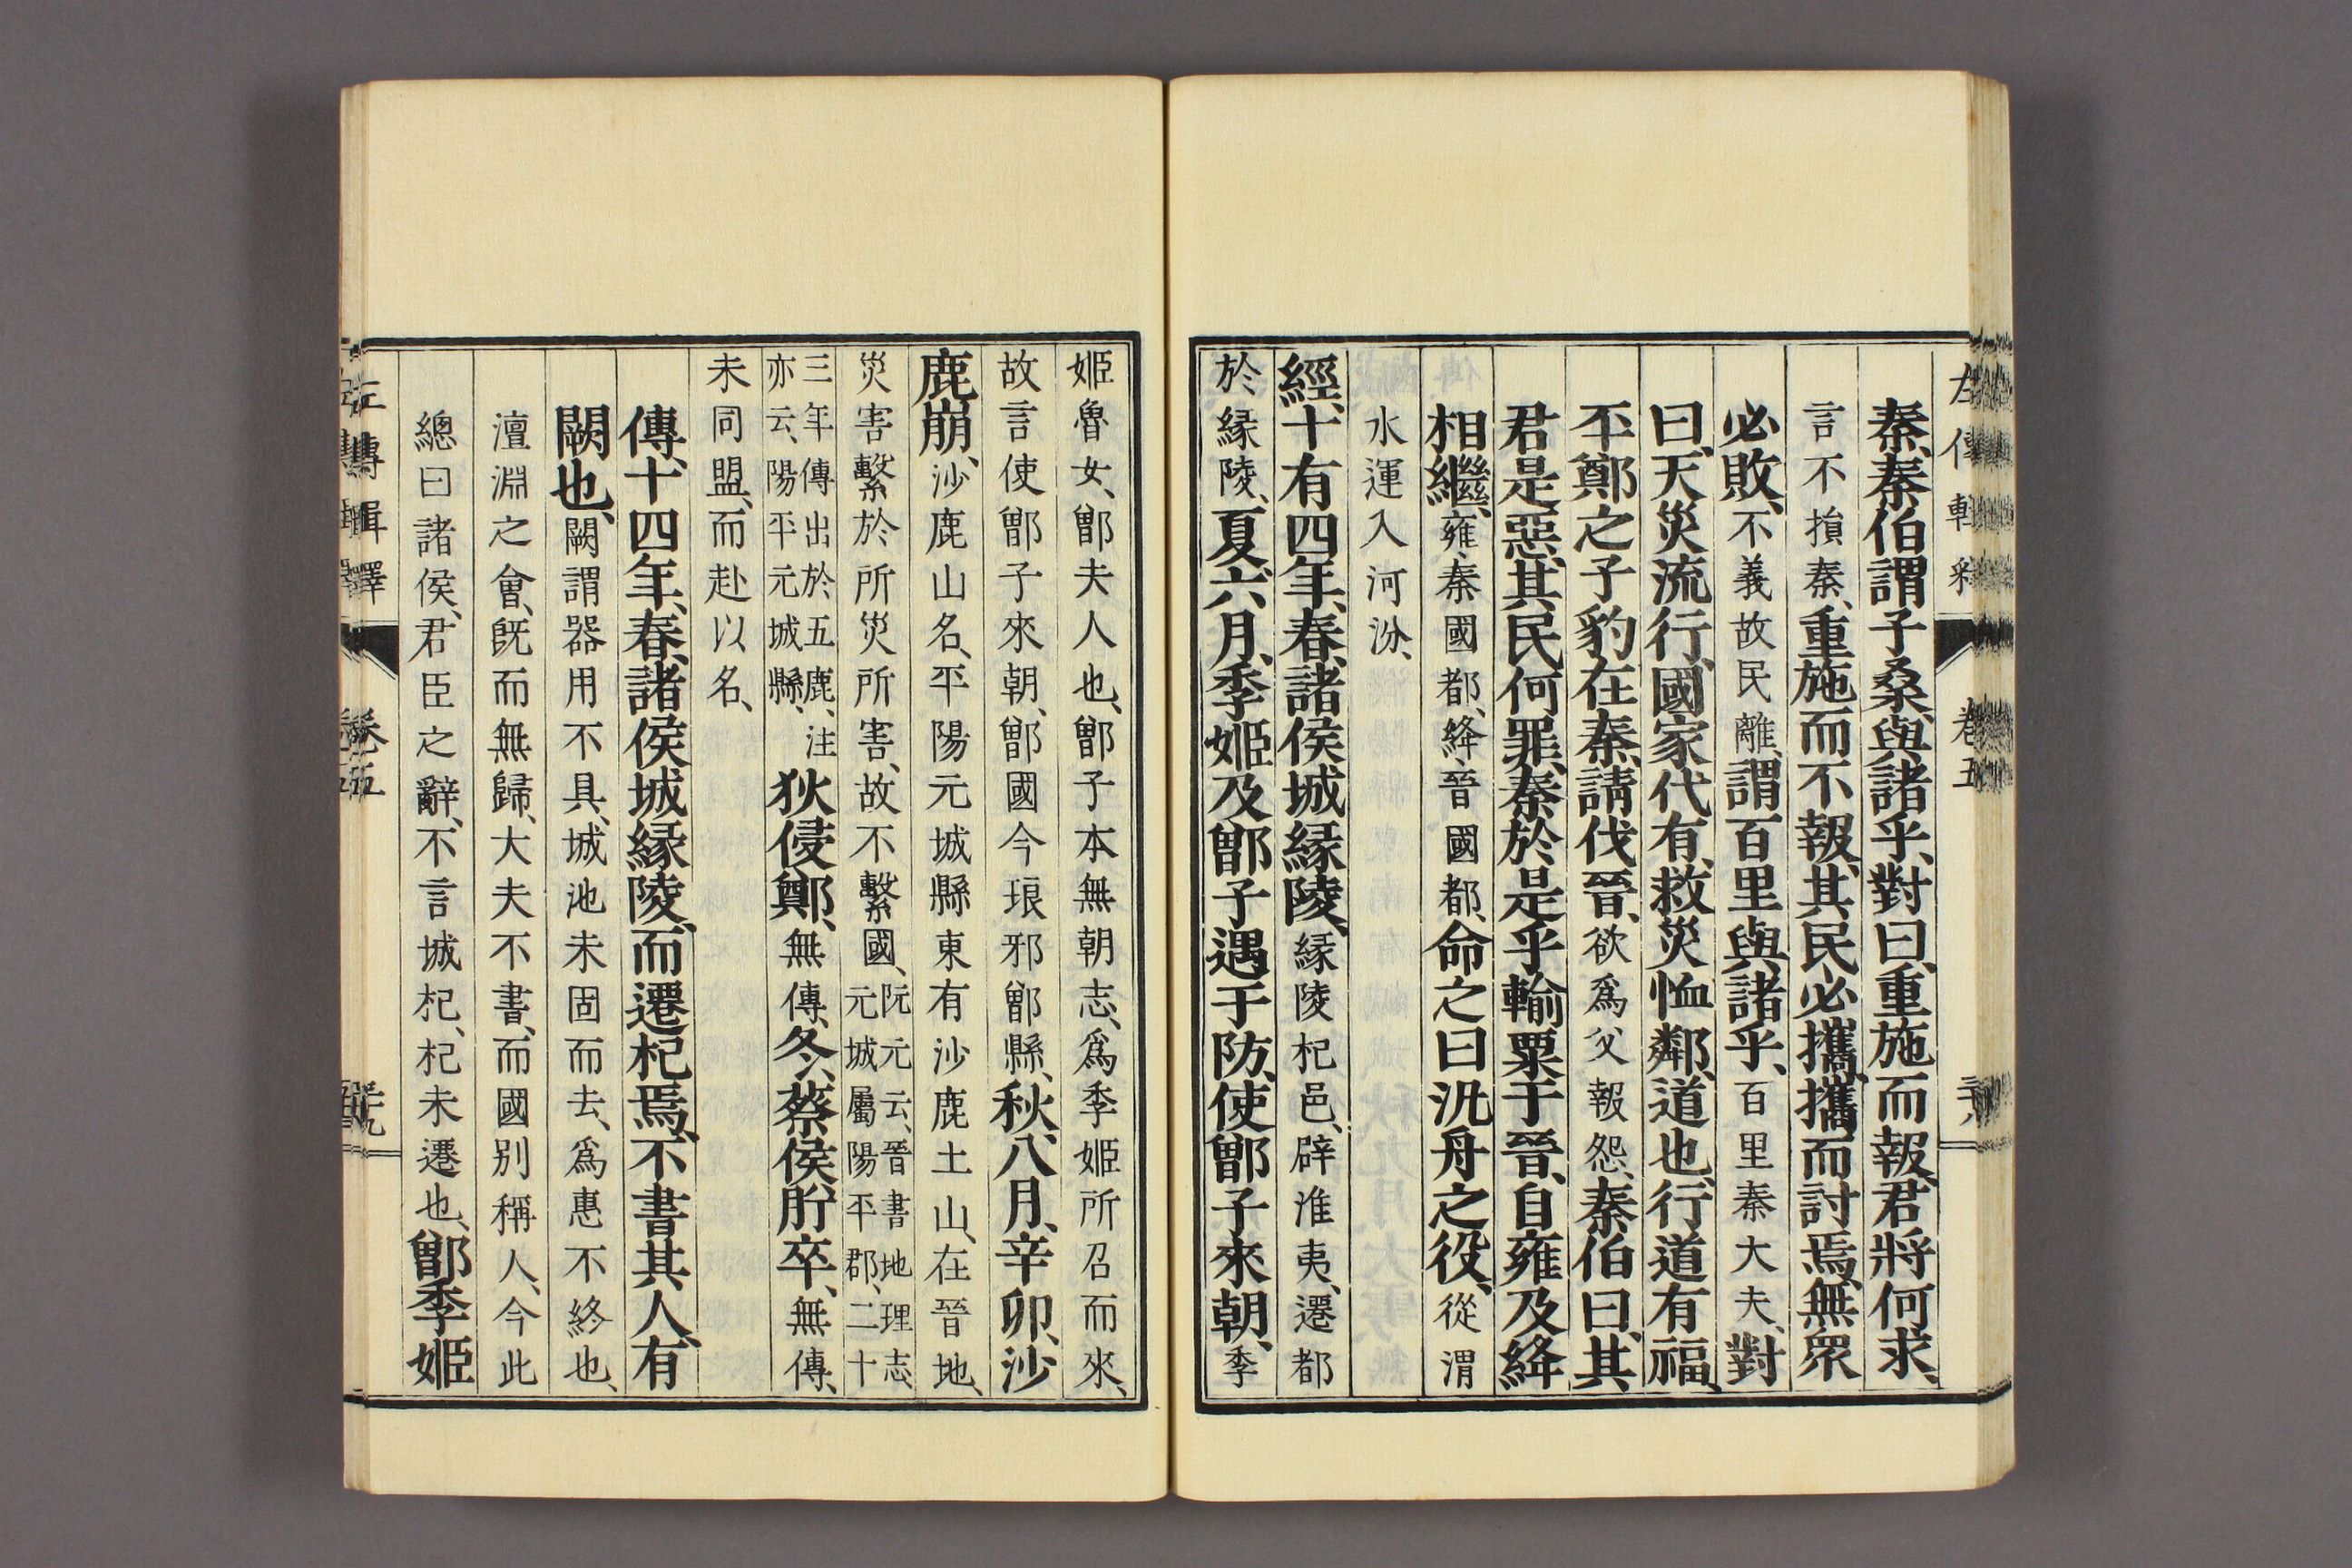 秦、秦伯謂子桑、與諸乎、對曰、重施而報、君將何求、
言不損秦、重施而不報、其民必攜、攜而討焉、無衆
必敗、不義故民離、謂百里與諸乎、百里秦大夫、對
曰、天災流行、國家代有、救災恤鄰、道也、行道有福、
丕鄭之子豹在秦、請伐晉、欲爲父報怨、秦伯曰、其
君是惡、其民何罪、秦於是乎輸粟于晉、自雍及絳
相繼、雍、秦國都、絳、晉國都、命之曰汎舟之役、從渭
水運入河汾、
經、十有四年、春、諸侯城緣陵、緣陵杞邑、辟淮夷、遷都
於緣陵、夏、六月、季姬及鄫子遇于防、使鄫子來朝、季
卷五
姬魯女、鄫夫人也、鄫子本無朝志、爲季姬所召而來、
故言使鄫子來朝、鄫國今琅邪鄫縣、秋、八月、辛卯、沙
鹿崩、沙鹿山名、平陽元城縣東有沙鹿土山、在晉地、
災害繫於所災所害、故不繫國、阮元云、晉書地理志、
元城屬陽平郡、二十
三年傳出於五鹿、注
亦云、陽平元城縣、狄侵鄭、無傳、冬、蔡侯肸卒、無傳、
未同盟、而赴以名、
傳、十四年、春、諸侯城緣陵、而遷杞焉、不書其人、有
闕也、闕謂器用不具、城池未固而去、爲惠不終也、
澶淵之會、旣而無歸、大夫不書、而國別稱人、今此
總曰諸侯、君臣之辭、不言城杞、杞未遷也、鄫季姬
左傳輯釋 卷五